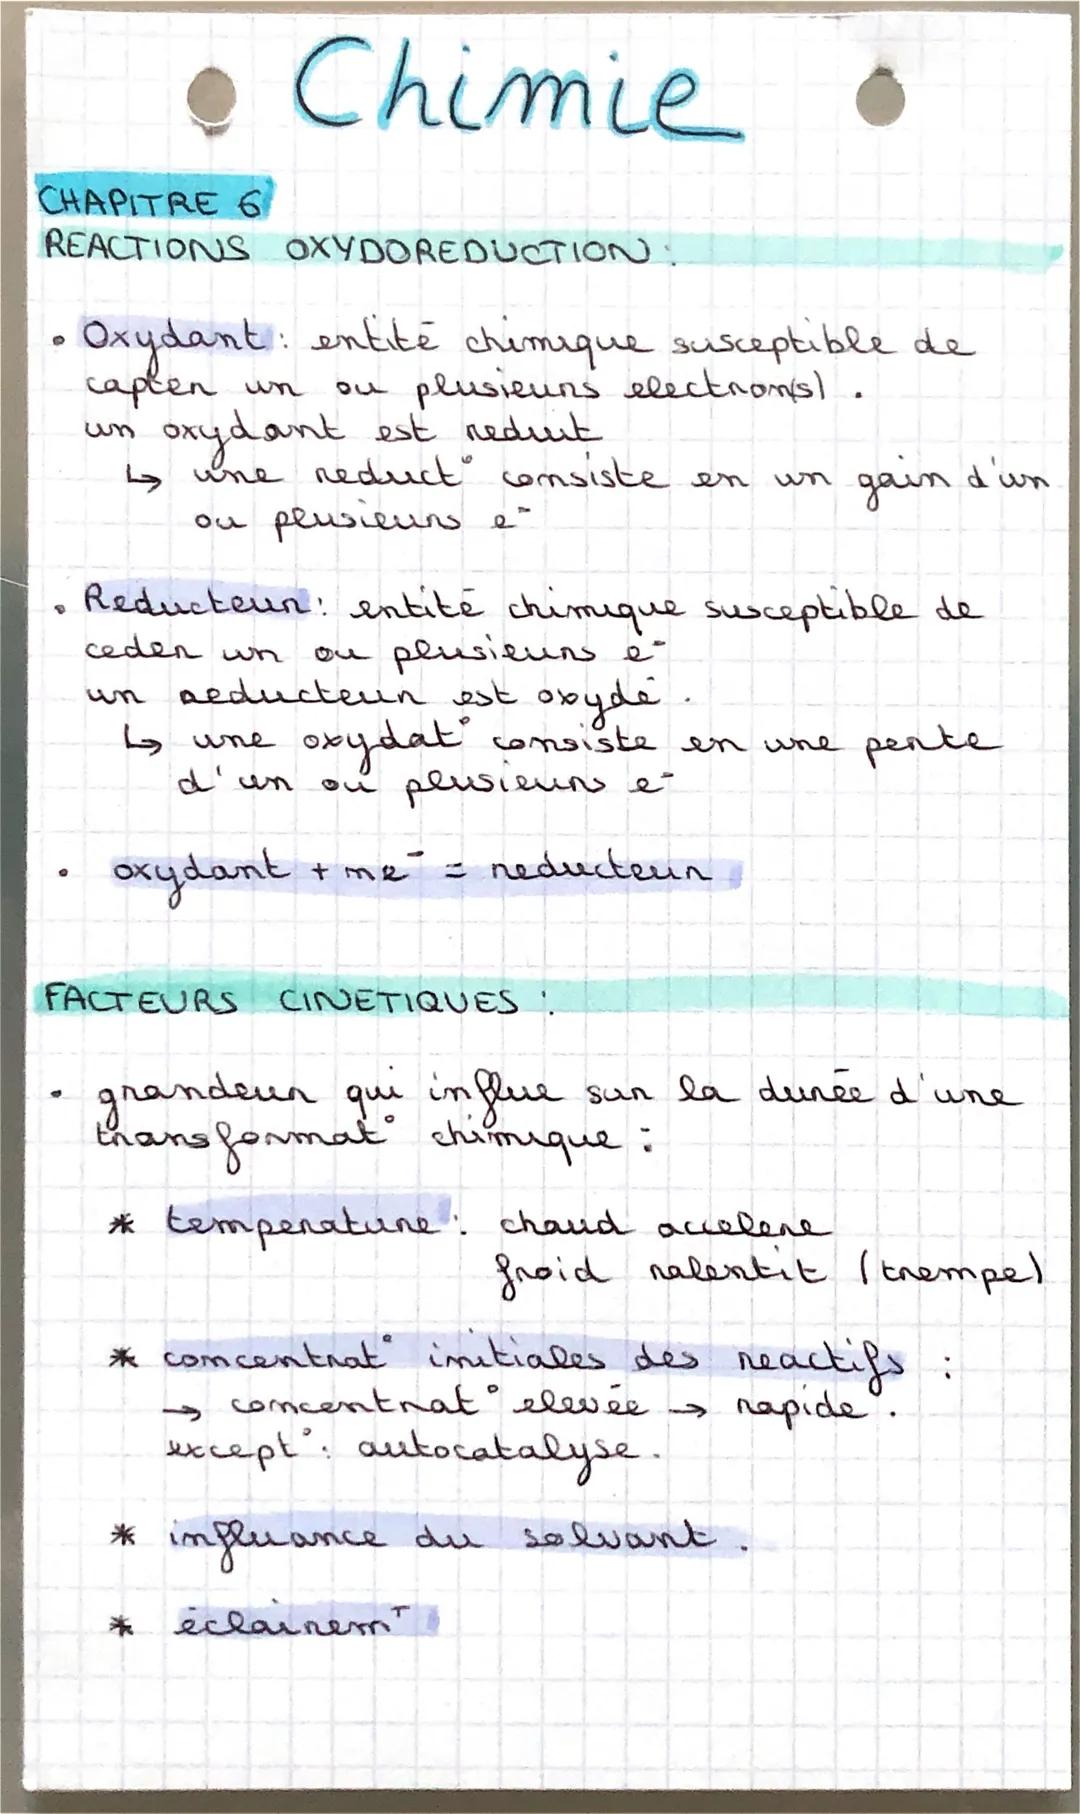 Chimie
CHAPITRE 6
REACTIONS OXYDOREDUCTION :
• Oxydant : entité chimique susceptible de
capter un ou plusieurs electron(s).
un oxydant est reduit
↳ une reduct° consiste en un gain d'un
ou plusieurs e-
• Reducteur : entité chimique susceptible de
ceder un ou plusieurs e-
un reducteur est oxydé.
↳ une oxydat° consiste en une perte
d'un ou plusieurs e-
• oxydant + ne- = reducteur
FACTEURS CINETIQUES :
• grandeur qui influe sur la durée d'une
transformat° chimique :
* temperature : chaud accelere
froid ralentit (trempe)
* concentrat° initiales des reactifs :
→ concentrat° elevée → rapide.
except° : autocatalyse.
* influance du solvant.
* éclairemT